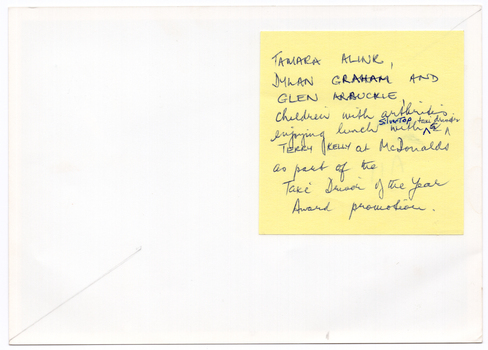 TAMARA ALINK,
DYLAN GRAHAM AND
GLEN ARBUCKLE
children with arthritis
enjoying lunch with taxi driver
TERRY KELLY at McDonalds
as part of the
Taxi Driver of the Year
Award promotion.